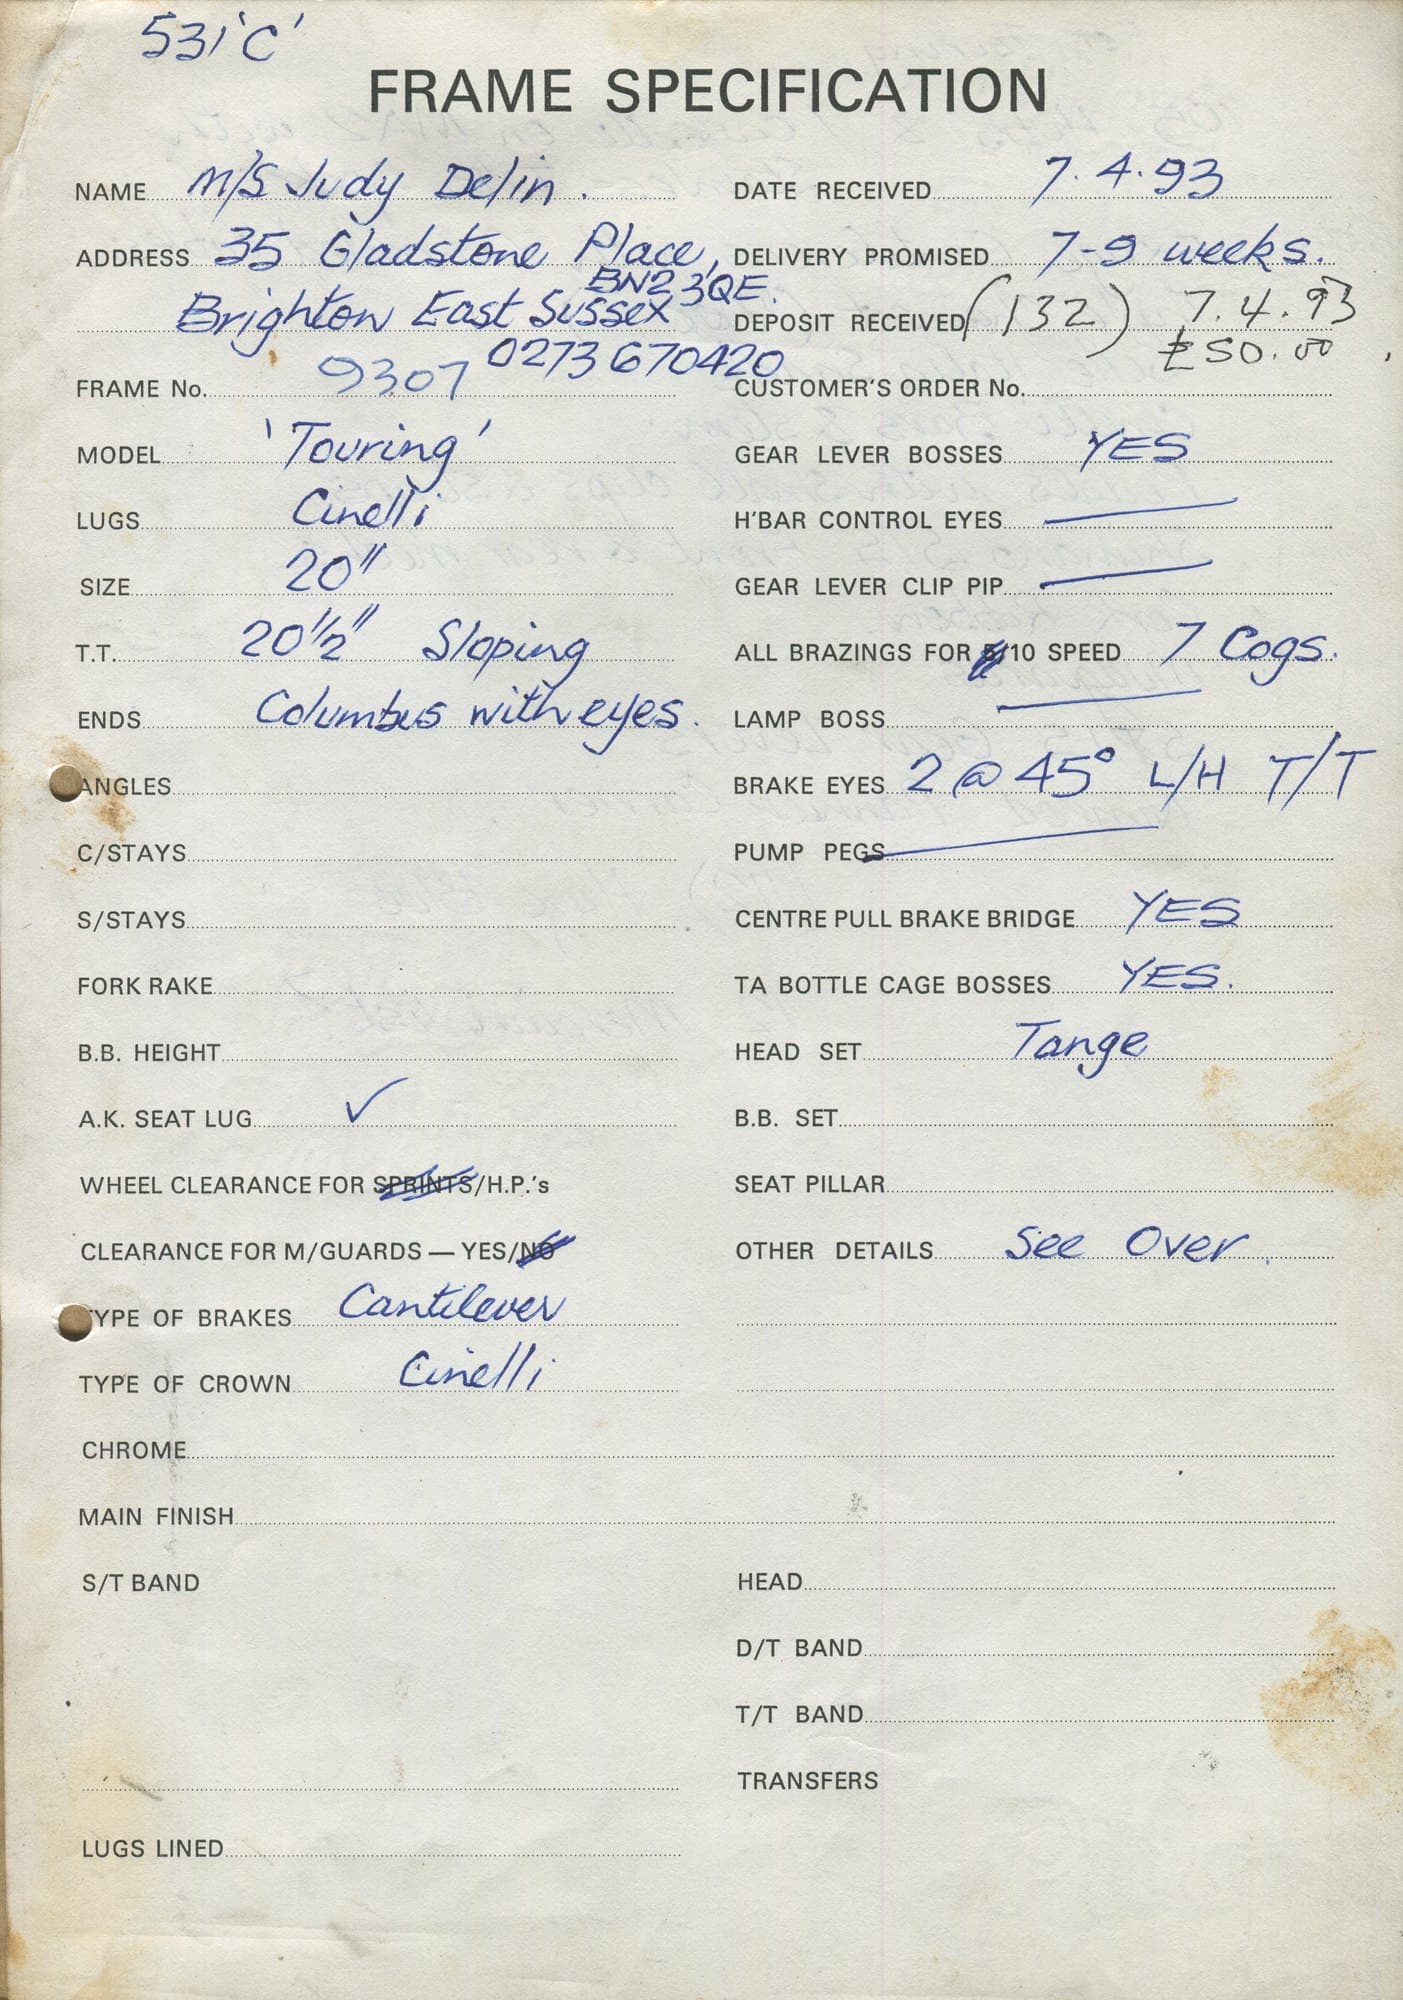 531 'C'
FRAME SPECIFICATION
NAME M/S Judy Delin.
ADDRESS 35 Gladstone Place,
BN2 3QE.
Brighton East Sussex
0273 670420
FRAME No. 9307
MODEL 'Touring'
LUGS Cinelli
SIZE 20"
T.T. 20 1/2" Sloping
ENDS Columbus with eyes.
ANGLES
C/STAYS
S/STAYS
FORK RAKE
B.B. HEIGHT
A.K. SEAT LUG ✓
WHEEL CLEARANCE FOR SPRINTS/H.P.'s
CLEARANCE FOR M/GUARDS — YES/NO
TYPE OF BRAKES Cantilever
TYPE OF CROWN Cinelli
CHROME
MAIN FINISH
S/T BAND
LUGS LINED
DATE RECEIVED 7.4.93
DELIVERY PROMISED 7-9 weeks.
DEPOSIT RECEIVED (132) 7.4.93
£50.00
CUSTOMER'S ORDER No.
GEAR LEVER BOSSES YES
H'BAR CONTROL EYES
GEAR LEVER CLIP PIP
ALL BRAZINGS FOR 5/10 SPEED 7 Cogs.
LAMP BOSS
BRAKE EYES 2 @ 45° L/H T/T
PUMP PEGS
CENTRE PULL BRAKE BRIDGE YES
TA BOTTLE CAGE BOSSES YES.
HEAD SET Tange
B.B. SET
SEAT PILLAR
OTHER DETAILS See Over.
HEAD
D/T BAND
T/T BAND
TRANSFERS